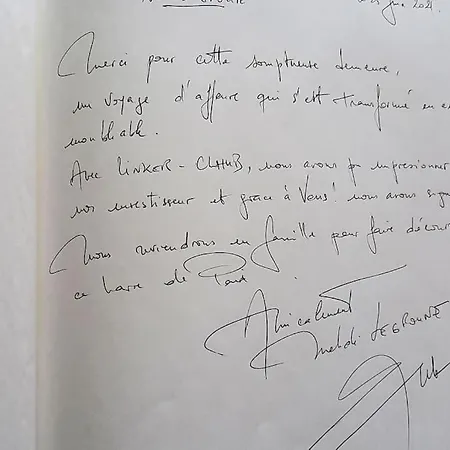 juin 2021.
Merci pour cette somptueuse demeure,
un voyage d'affaire qui s'est transformé en
inoubliable.
Avec LINKER-CLHUB, nous avons pu impressionner
nos investisseur et grace à Vous! nous avons signé
Nous reviendrons en famille pour faire découvr
ce havre de Paix
Amicalement
Mehdi